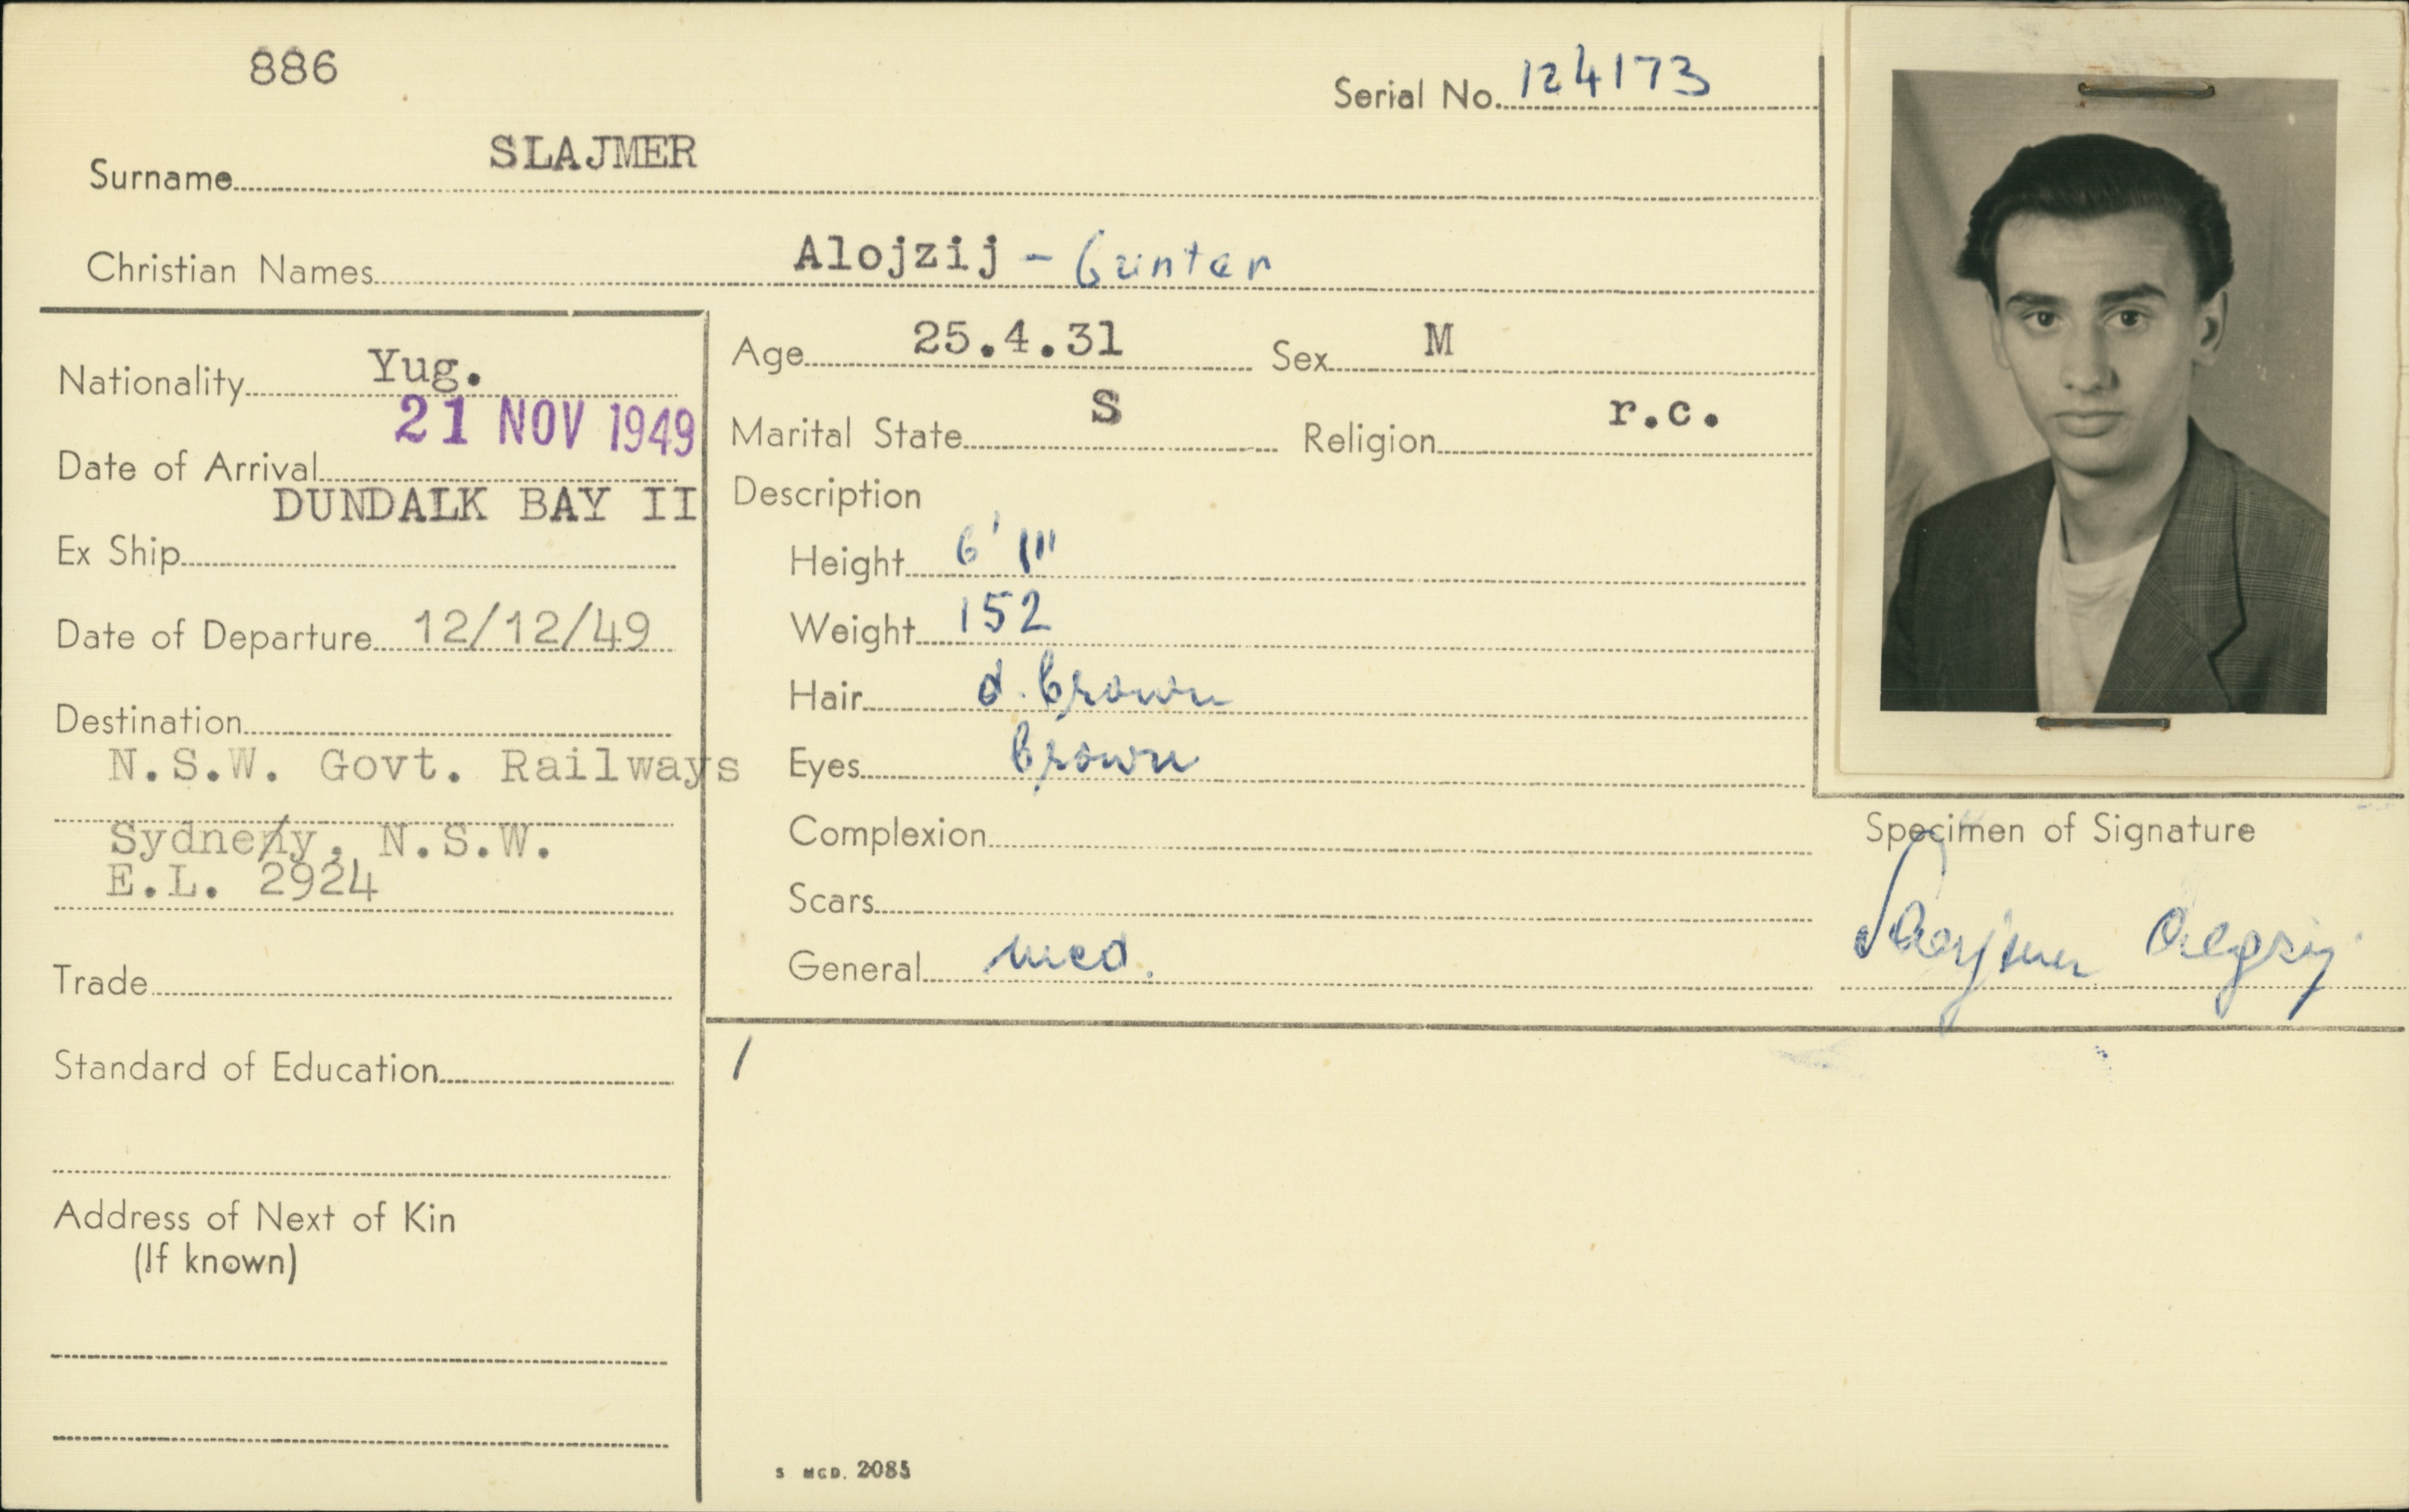 886
Serial No. 124173
Surname SLAJMER
Christian Names Alojzij - Günter
Nationality Yug.
Date of Arrival 21 NOV 1949
Ex Ship DUNDALK BAY II
Date of Departure 12/12/49
Destination
N.S.W. Govt. Railways
Sydney, N.S.W.
E.L. 2924
Trade
Standard of Education
Address of Next of Kin
(If known)
Age 25.4.31 Sex M
Marital State S Religion r.c.
Description
Height 6' 1"
Weight 152
Hair d. brown
Eyes brown
Complexion
Scars
General med.
Specimen of Signature
Slajmer Alojzij
/
S MCD. 2085